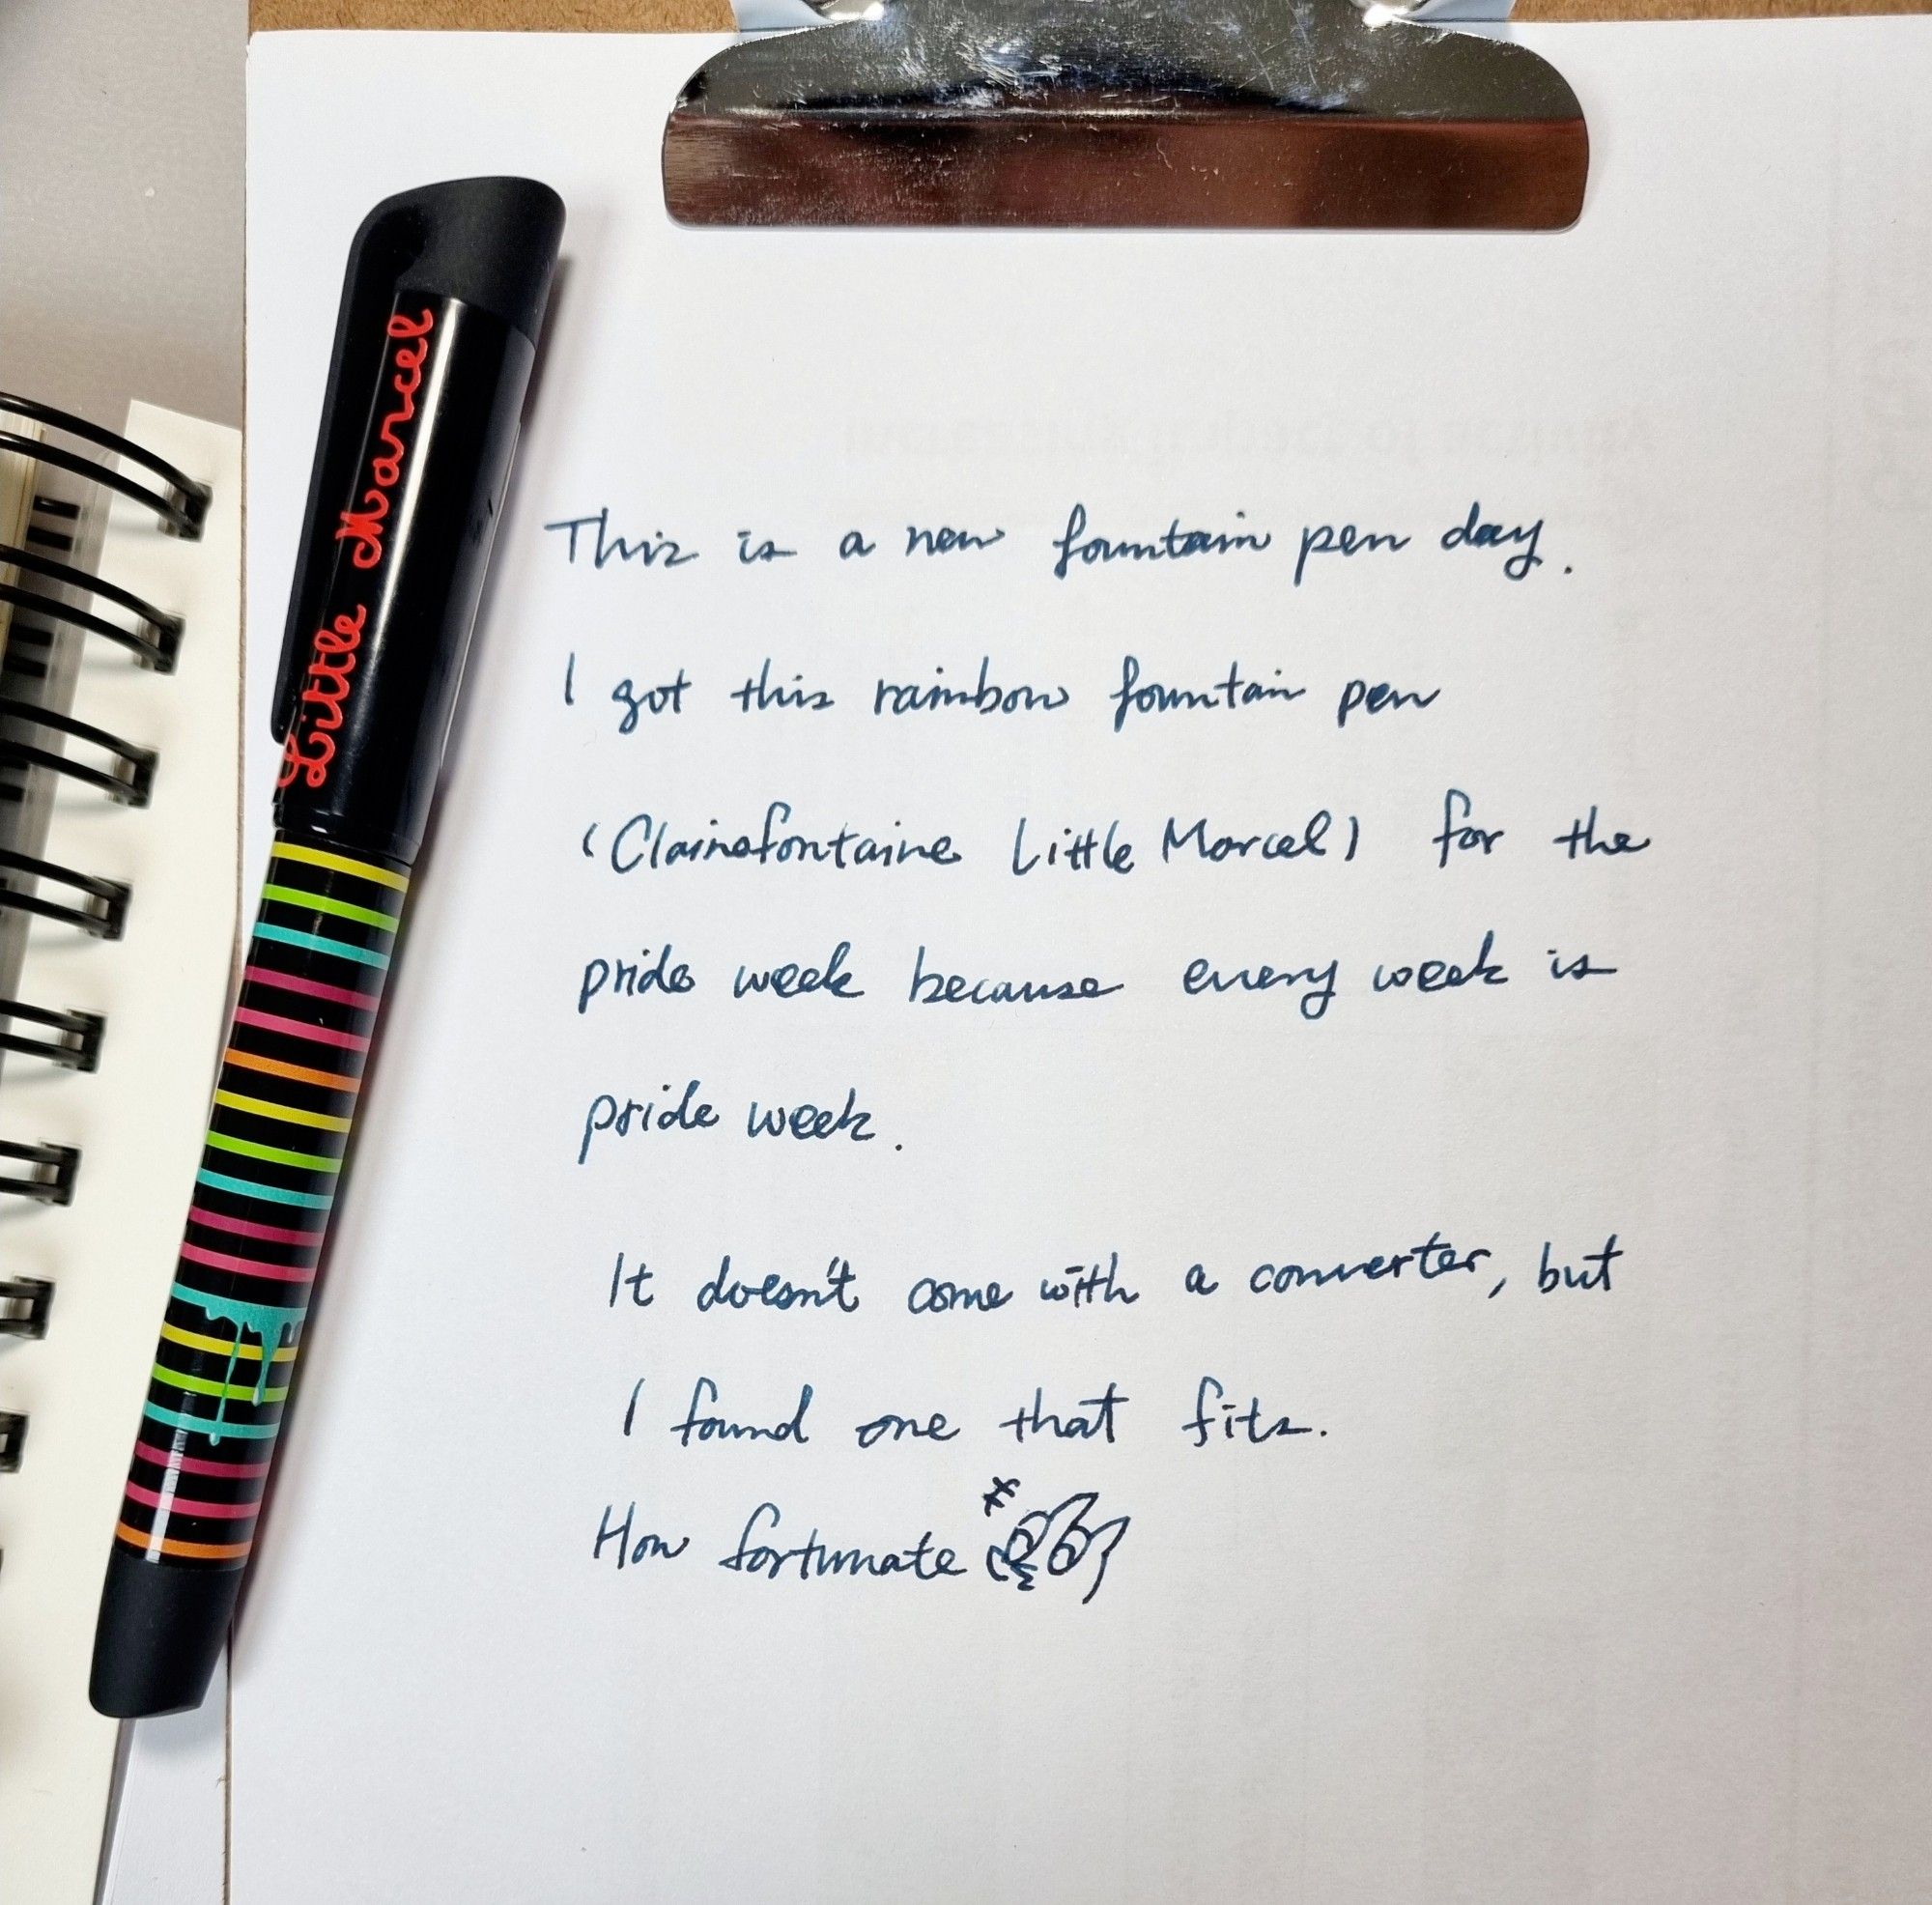 Little Marcel
This is a new fountain pen day.
I got this rainbow fountain pen
(Clairefontaine Little Marcel) for the
pride week because every week is
pride week.
It doesn't come with a converter, but
I found one that fits.
How fortunate